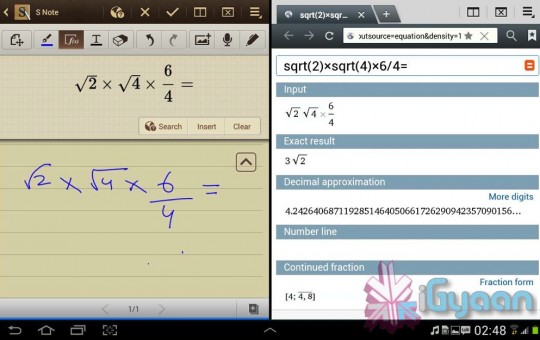 S Note
f(x)
T
√2 × √4 × 6/4 =
Search Insert Clear
√2 × √4 × 6/4 =
1/1
sqrt(2)×sqr...
outsource=equation&density=1
sqrt(2)×sqrt(4)×6/4=
Input
√2 √4 × 6/4
Exact result
3 √2
Decimal approximation
More digits
4.2426406871192851464050661726290942357090156...
Number line
Continued fraction
Fraction form
[4; 4, 8]
iGyaan
02:48